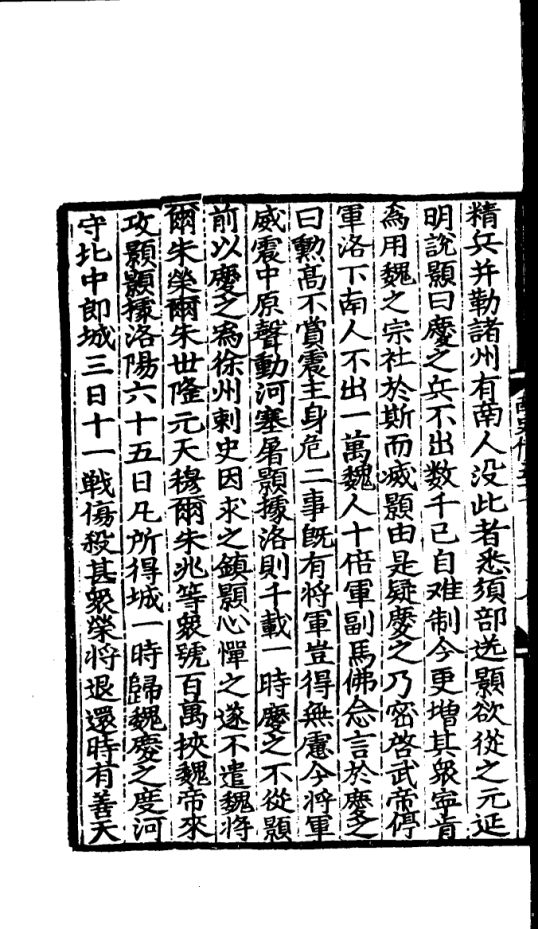 精兵并勒諸州有南人没此者悉須部送顥欲從之元延
明說顥曰慶之兵不出数千已自难制今更增其衆寧肯
爲用魏之宗社於斯而滅顥由是疑慶之乃密啓武帝停
軍洛下南人不出一萬魏人十倍軍副馬佛念言於慶之
曰勲髙不賞震主身危二事旣有将軍豈得無慮今将軍
威震中原聲動河塞屠顥據洛則千載一時慶之不從顥
前以慶之爲徐州刺史因求之鎮顥心憚之遂不遣魏将
爾朱榮爾朱世隆元天穆爾朱兆等衆號百萬挾魏帝來
攻顥顥據洛陽六十五日凡所得城一時歸魏慶之度河
守北中郎城三日十一戰傷殺甚衆榮将退還時有善天